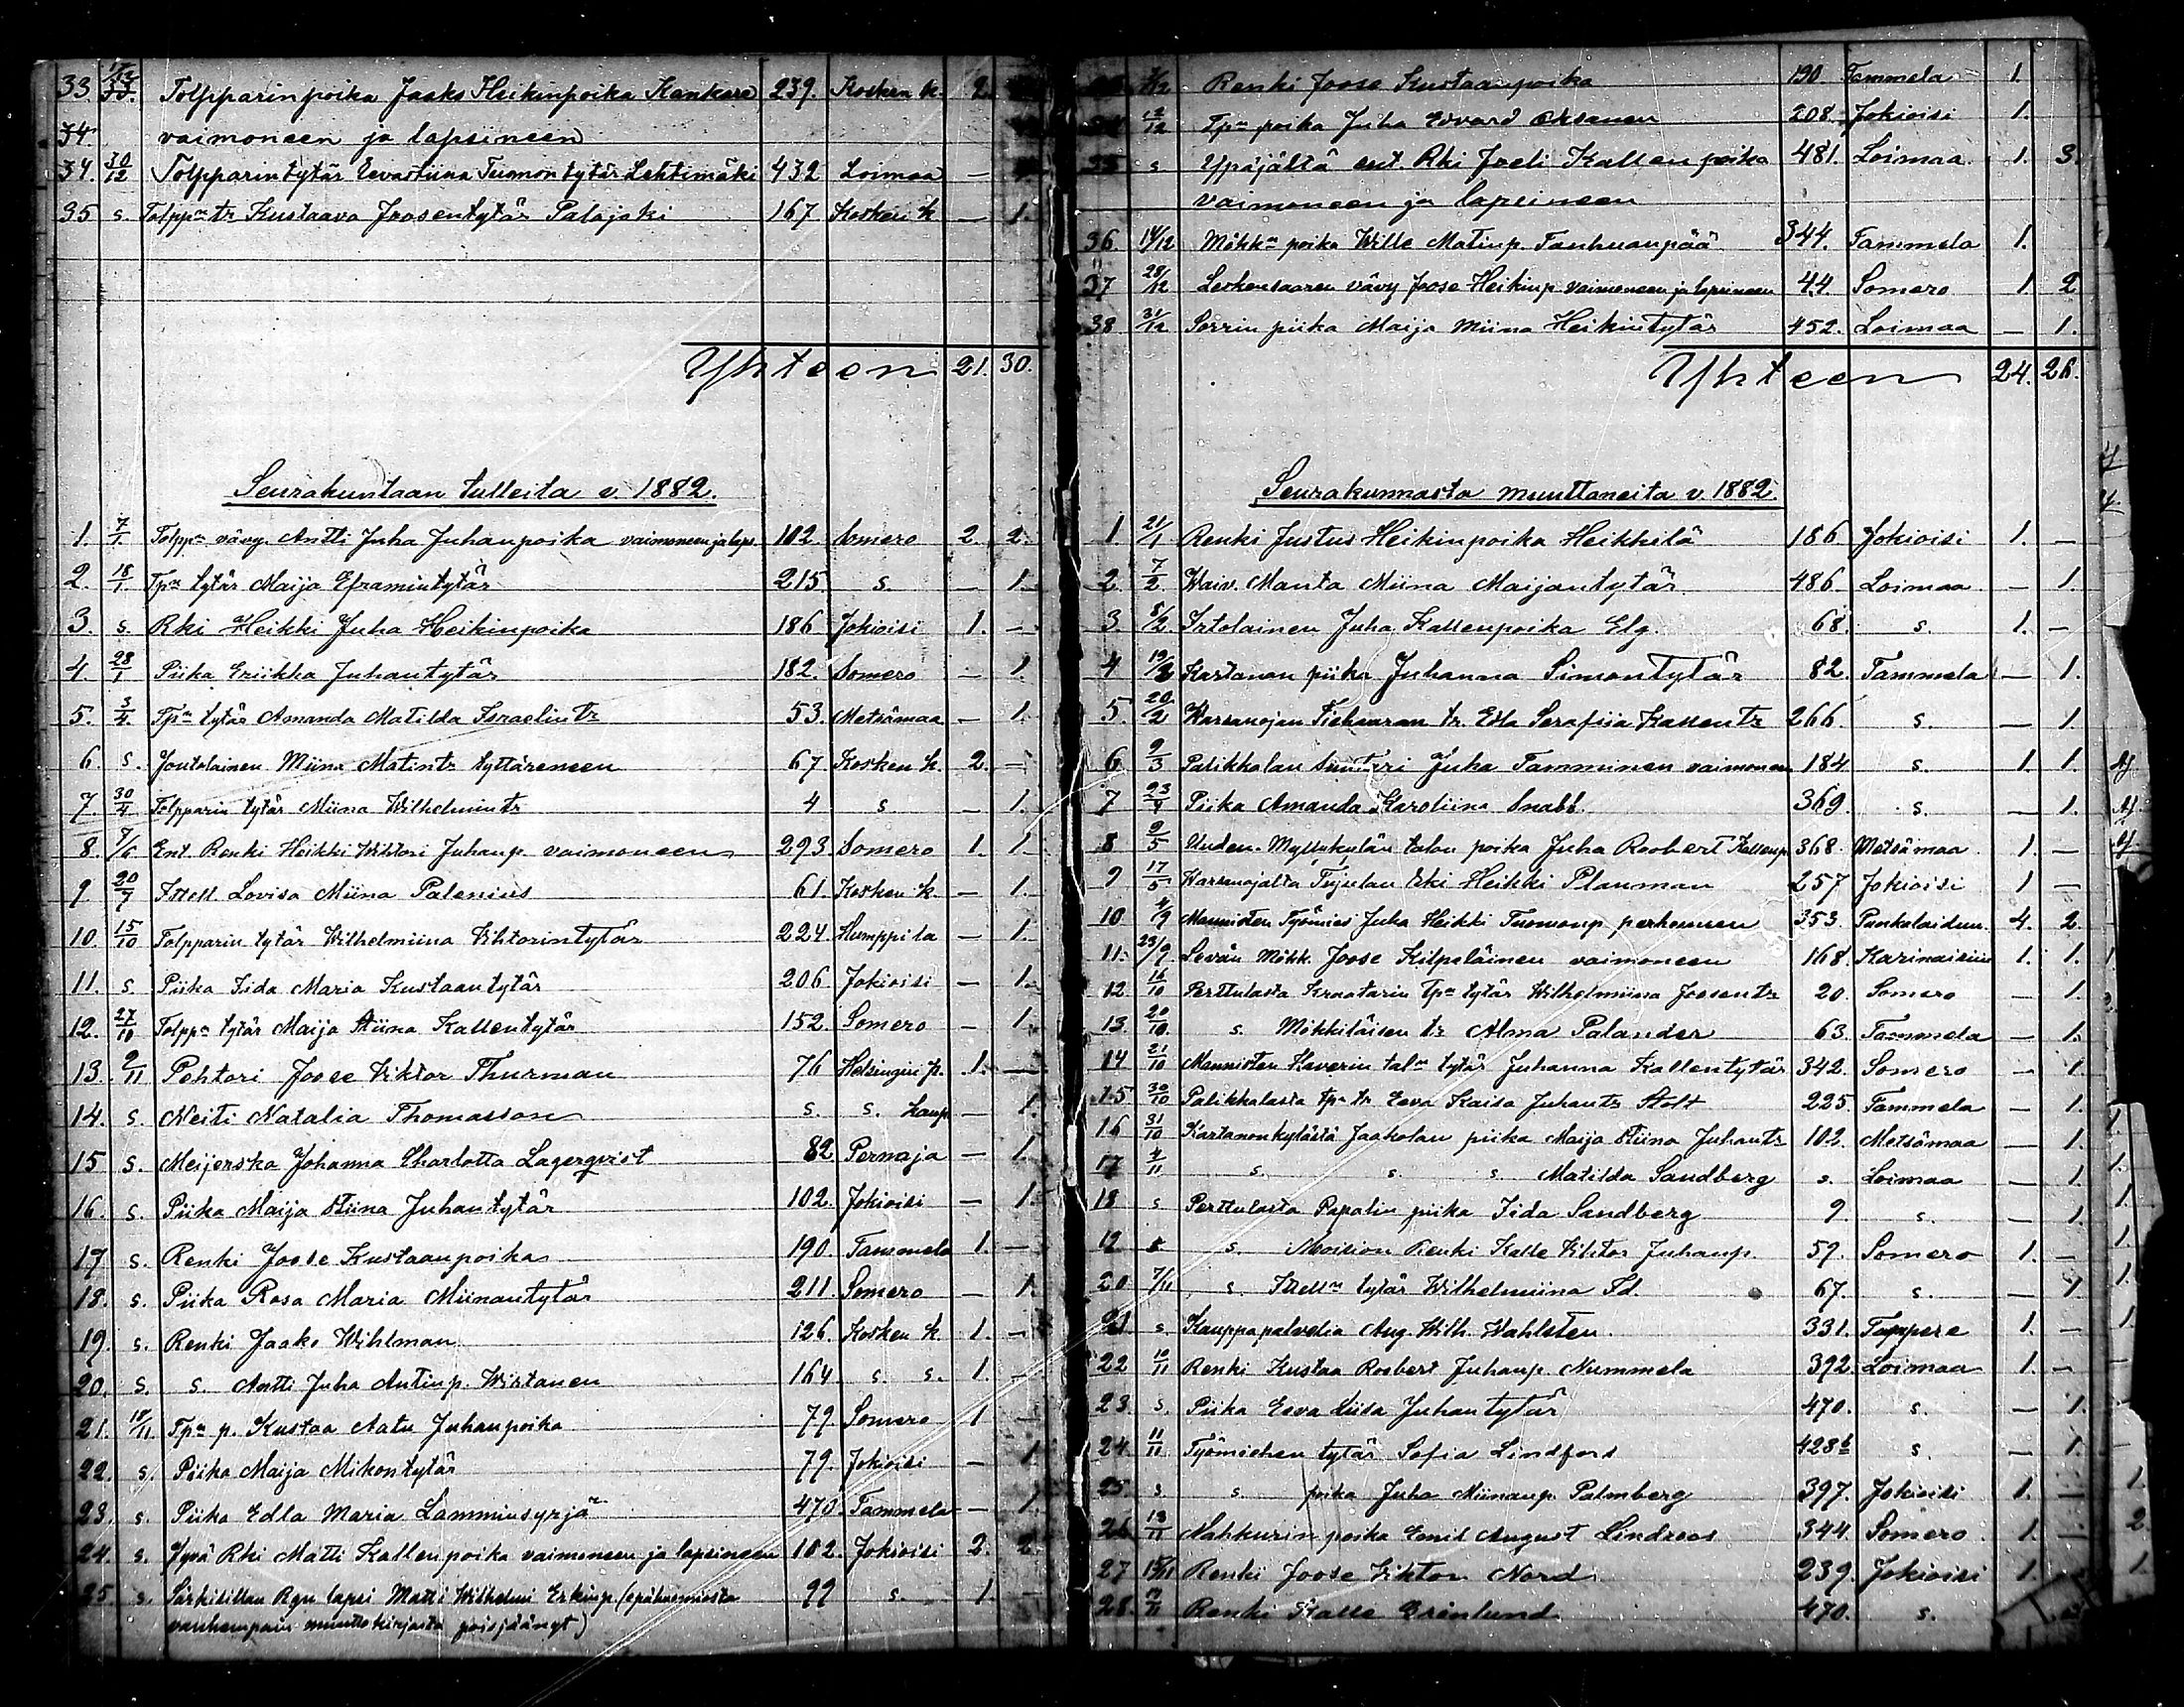 33. 17/12 Tolpparinpoika Jaako Heikinpoika Kankare 239. Kosken k. 2.
34. vaimoneen ja lapsineen
34. 30/12 Tolpparintytär Eevastiina Tuomontytär Lehtimäki 432 Loimaa —
35 s. Tolpp:n tr Kustaava Joosentytär Palojoki 167. Kosken k. — 1.
Yhteen 21. 30.
Seurakuntaan tulleita v. 1882.
1. 7/1. Tolpp:n vävy. Antti Juha Juhanpoika vaimoneen ja laps. 102. Somero 2. 2.
2. 18/1 Tp:n tytär Maija Eframintytär 215. s. — 1.
3. s. Rki Heikki Juha Heikinpoika 186 Jokioisi 1. —
4. 28/1 Piika Eriikka Juhantytär 182. Somero — 1.
5. 3/4. Tp:n tytär Amanda Matilda Israelintr 53. Metsämaa — 1.
6. s. Joutolainen Miina Matintr tyttäreneen 67 Kosken k. 2. —
7. 30/4 Tolpparin tytär Miina Wilhelmintr 4 s — 1.
8. 7/6 Ent. Renki Heikki Wiktori Juhanp. vaimoneen 293 Somero 1. 1.
9 20/7 Ittell. Lovisa Miina Palenius 61. Kosken k. — 1.
10. 15/10 Tolpparin tytär Wilhelmiina Viktorintytär 224 Humppila — 1.
11. s. Piika Iida Maria Kustaantytär 206 Jokioisi — 1.
12. 27/10 Tolpp:n tytär Maija Stiina Kallentytär 152. Somero — 1.
13. 2/11 Pehtori Joose Viktor Thurman 76 Helsingin p. 1. —
14. s. Neiti Natalia Thomasson s. s. kaup — 1.
15 s. Meijerska Johanna Charlotta Lagerqvist 82 Pernaja — 1.
16. s. Piika Maija Stiina Juhantytär 102. Jokioisi — 1.
17 s. Renki Joose Kustaanpoika 190. Tammela 1. —
18. s. Piika Rosa Maria Miinantytär 211. Somero — 1.
19. s. Renki Jaako Wihlman 126. Kosken k. 1. —
20. s. s. Antti Juha Antinp. Wirtanen 164 s. s. 1. —
21. 18/11 Tp:n p. Kustaa Aatu Juhanpoika 79. Somero 1 —
22. s. Piika Maija Mikontytär 79. Jokioisi — 1.
23. s. Piika Edla Maria Lamminsyrjä 470 Tammela — 1.
24. s. Jyvä Rki Matti Kallenpoika vaimoneen ja lapsineen 102. Jokioisi 2. 2.
25. s. Särkisillan Rgn lapsi Matti Wilhelmi Erkinp. (epähuomiosta 99 s. 1. —
vanhempain muuttokirjasta poisjäänyt)
/12 Renki Joose Kustaanpoika 190 Tammela 1.
12/12 Tp:n poika Juha Edvard Oksanen 208 Jokioisi 1.
35 s Ypäjältä ent. Rki Iseli Kallenpoika 481. Loimaa. 1. 3.
vaimoneen ja lapsineen
36. 14/12 Mökk:n poika Wille Matinp. Tanhuanpää 344. Tammela 1.
37 28/12 Leskensaaren vävy Joose Heikinp vaimoneen ja lapsineen 44. Somero 1. 2
38 31/12 Sorrin piika Maija Miina Heikintytär 452. Loimaa — 1.
Yhteen 24. 26.
Seurakunnasta muuttaneita v. 1882.
1. 21/1 Renki Justus Heikinpoika Heikkilä 186 Jokioisi 1. —
2. 7/2. Waiv. Manta Miina Maijantytär 486. Loimaa — 1.
3. 8/2. Irtolainen Juha Kallenpoika Elg. 68. s. 1. —
4 19/2 Kartanon piika Juhanna Simontytär 82. Tammela — 1.
5. 20/2 Karsanojan tr. Edla Serafiia Kallentr 266. s. — 1.
6 9/3 Palikkalan Suutari Juha Tamminen vaimoneen 184 s. 1. 1.
7 23/4 Piika Amanda Karoliina Snabb. 369. s. — 1.
8 9/5 Uuden-Myllykylän talon poika Juha Roobert Kallenp 368. Metsämaa 1. —
9 17/5 Karsanojalta Tujulan Rki Heikki Planman 257 Jokioisi 1 —
10 4/9 Mannisten Työmies Juha Heikki Tuomonp perheineen 353. Punkalaidun. 4. 2
11. 23/9 Levän Mökk. Joose Kilpeläinen vaimoneen 168. Karinaisiin 1. 1.
12. 16/10 Perttulasta Kraatarin Tp:n tytär Wilhelmiina Joosentr 20. Somero — 1.
13 20/10 s. Mökkiläisen tr Alma Palander 63. Tammela — 1.
14 21/10 Mannisten Kaverin tal:n tytär Juhanna Kallentytär 342. Somero — 1
15 30/10 Palikkalasta tp:n tr Eeva Kaisa Juhantr Stolt 225. Tammela — 1.
16 31/10 Kartanonkylästä Jaakolan piika Maija Stiina Juhantr 102. Metsämaa — 1.
17 4/11 s. s. s. Matilda Sandberg s. Loimaa — 1
18 s Perttulasta Papalin piika Iida Sandberg 9. s. — 1.
19 s s. Moision Renki Kalle Viktor Juhanp. 59. Somero 1. —
20 7/11 s. Ittell:n tytär Wilhelmiina Id. 67. s. — 1
21 s. Kauppapalvelia Aug. Wilh. Wahlsten. 331. Tampere 1. —
22 10/11 Renki Kustaa Roobert Juhanp. Nummela 392. Loimaa 1. —
23. s. Piika Eeva Liisa Juhantytär 470. s. — 1.
24. 11/11 Työmiehen tytär Sofia Lindfors 428b s. — 1.
25 s. s. poika Juha Miinanp. Palmberg 397. Jokioisi 1. —
26 13/11 Nahkurin poika Emil August Lindroos 344. Somero 1.
27 15/11 Renki Joose Viktor Nord 239. Jokioisi 1.
28. 17/11 Renki Kalle Grönlund 470. s.